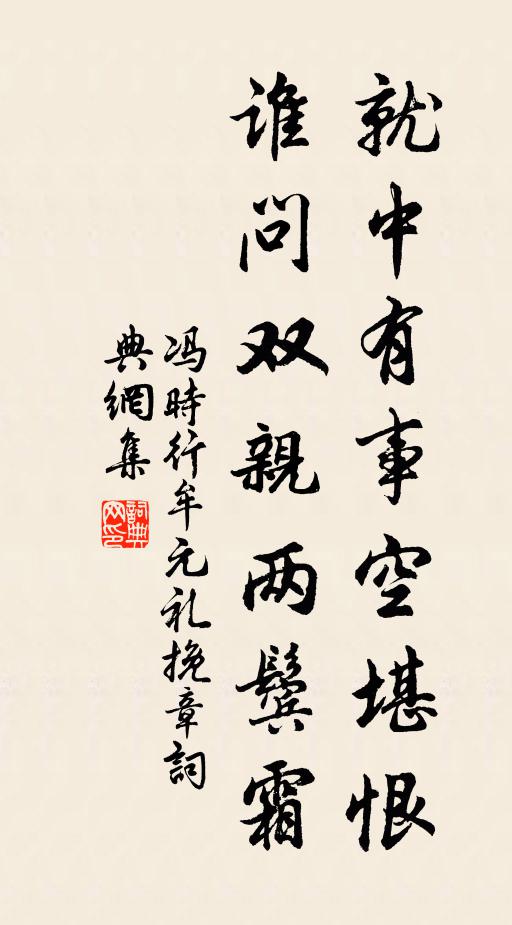 就中有事空堪恨
谁问双親两鬓霜
冯時行牟元礼挽章詞
典網集
詞典网印